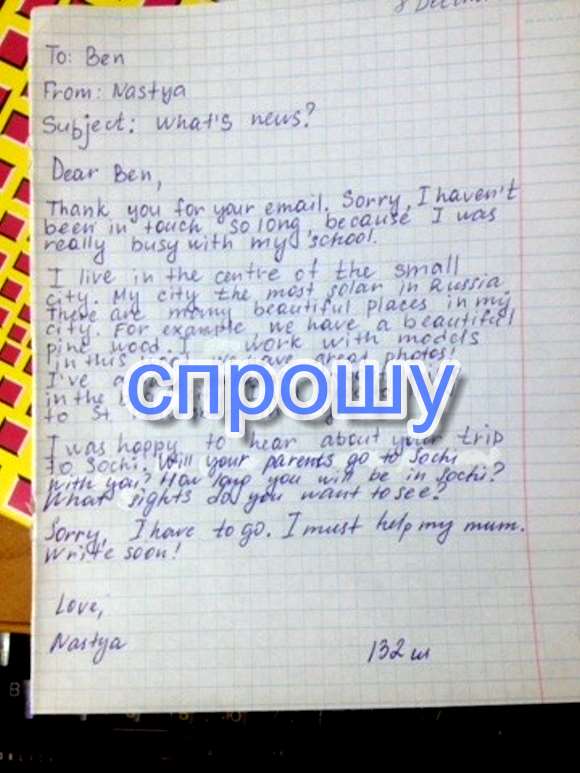 To: Ben
From: Nastya
Subject: What's news?
Dear Ben,
Thank you for your email. Sorry, I haven't
been in touch so long, because I was
really busy with my school.
I live in the centre of the small
city. My city the most solar in Russia.
There are many beautiful places in my
city. For example, we have a beautiful
pine wood. I work with models
in this we have great photos!
I've
in the
to St.
спрошу
I was happy to hear about your trip
to Sochi. Will your parents go to Sochi
with you? How long you will be in Sochi?
What sights do you want to see?
Sorry, I have to go. I must help my mum.
Write soon!
Love,
Nastya
132